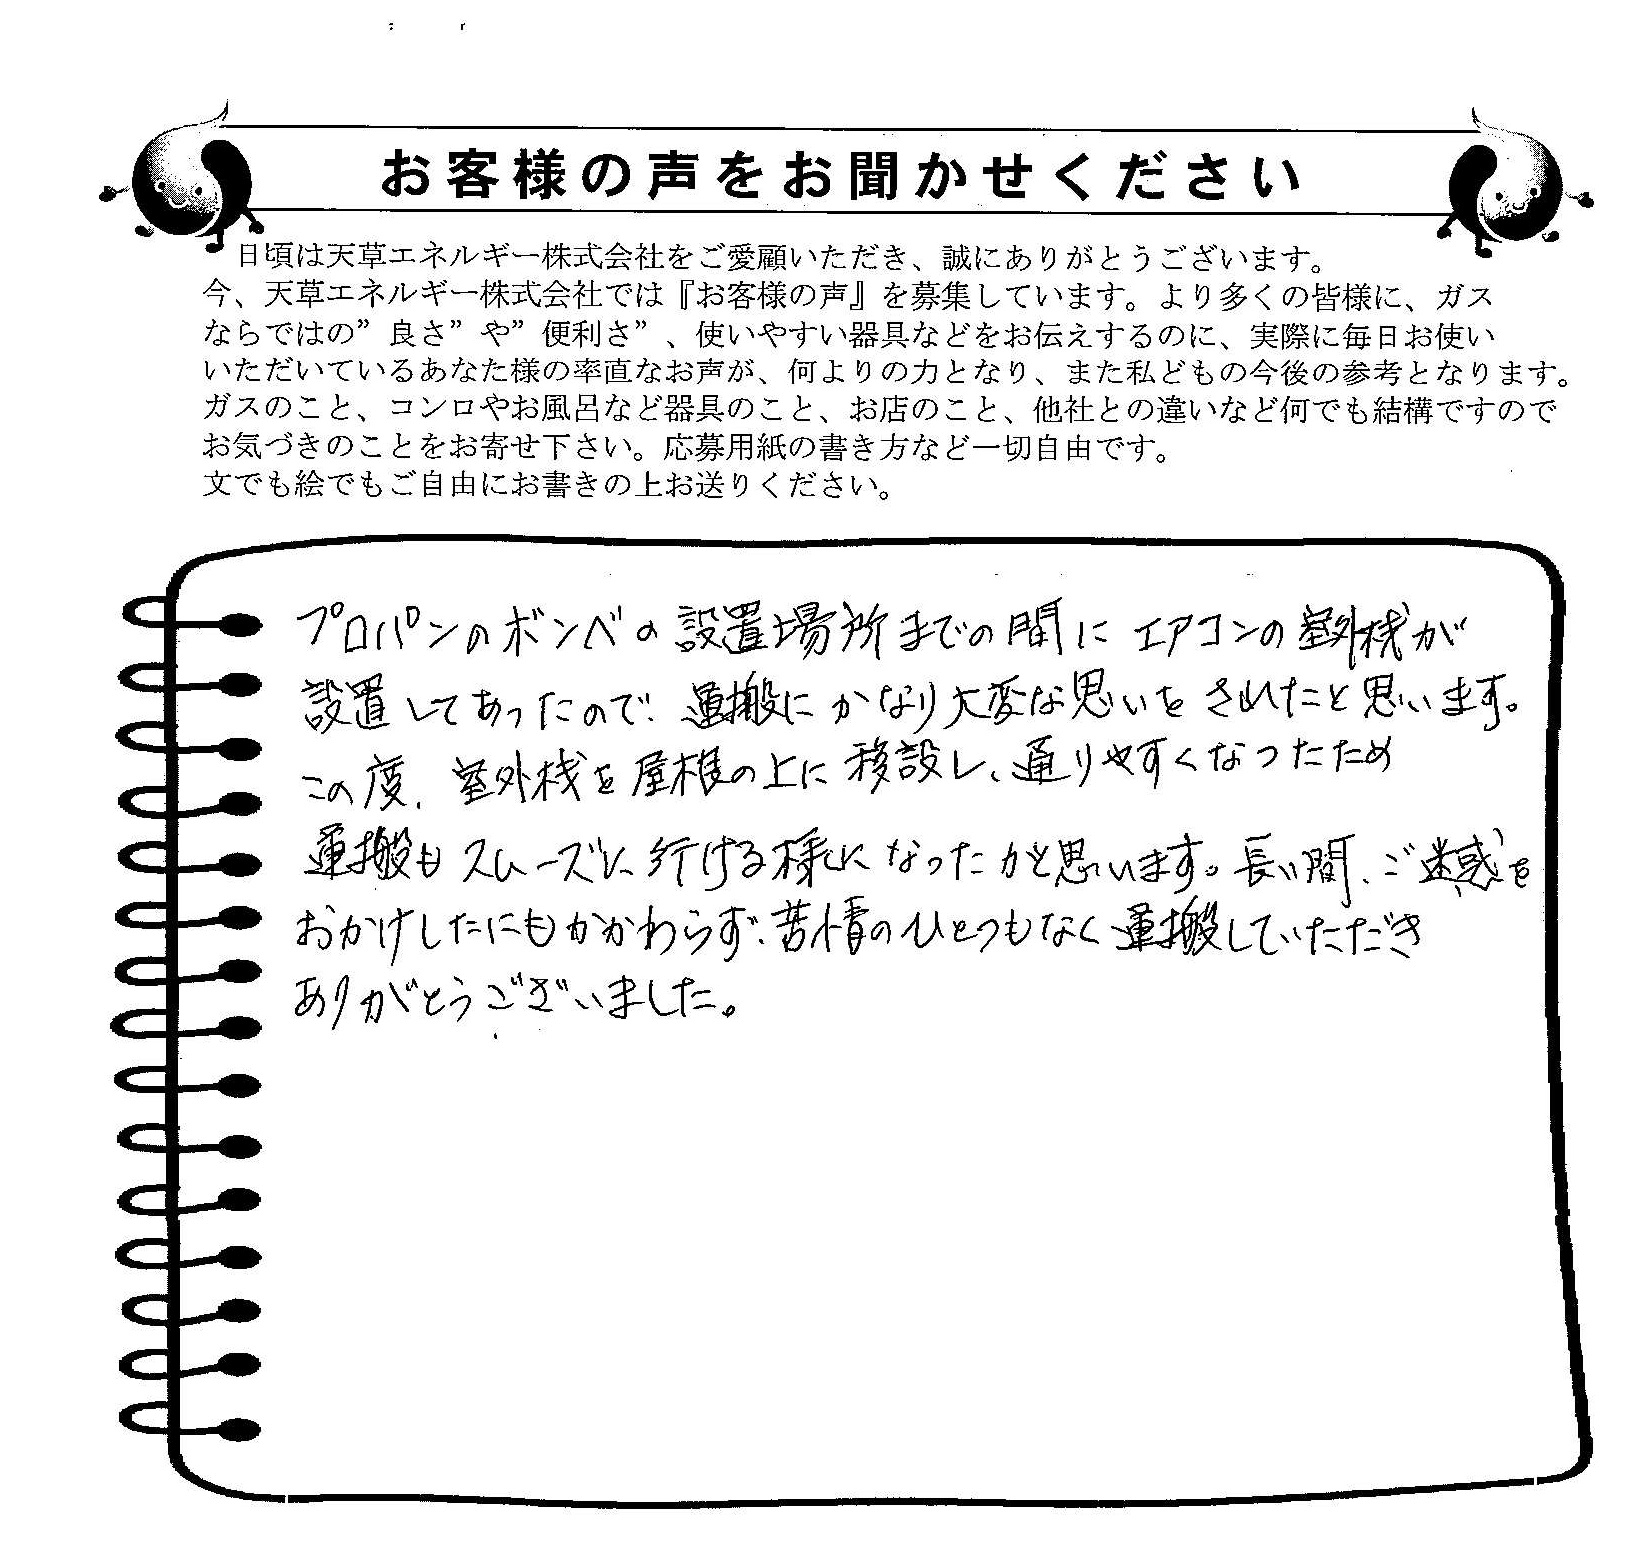 お客様の声をお聞かせください
日頃は天草エネルギー株式会社をご愛顧いただき、誠にありがとうございます。
今、天草エネルギー株式会社では『お客様の声』を募集しています。より多くの皆様に、ガス
ならではの”良さ”や”便利さ”、使いやすい器具などをお伝えするのに、実際に毎日お使い
いただいているあなた様の率直なお声が、何よりの力となり、また私どもの今後の参考となります。
ガスのこと、コンロやお風呂など器具のこと、お店のこと、他社との違いなど何でも結構ですので
お気づきのことをお寄せ下さい。応募用紙の書き方など一切自由です。
文でも絵でもご自由にお書きの上お送りください。
プロパンのボンベの設置場所までの間にエアコンの室外機が
設置してあったので、運搬にかなり大変な思いをされたと思います。
この度、室外機を屋根の上に移設し、通りやすくなったため
運搬もスムーズに行ける様になったかと思います。長い間、ご迷惑を
おかけしたにもかかわらず、苦情のひとつもなく運搬していただき
ありがとうございました。